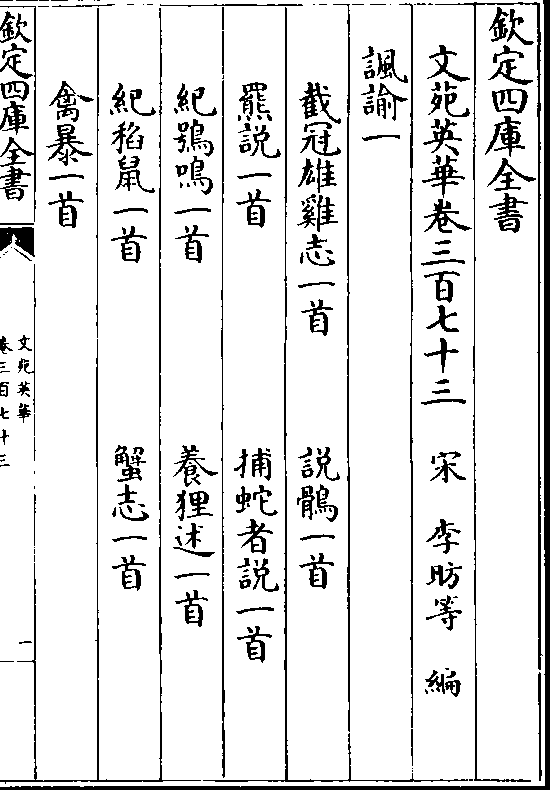 欽定四庫全書
文苑英華卷三百七十三　宋　李昉等　編
諷諭一
截冠雄雞志一首　說鶻一首
羆說一首　捕蛇者說一首
紀鴞鳴一首　養狸述一首
紀稻鼠一首　蟹志一首
禽暴一首
欽定四庫全書
文苑英華
卷三百七十三
一